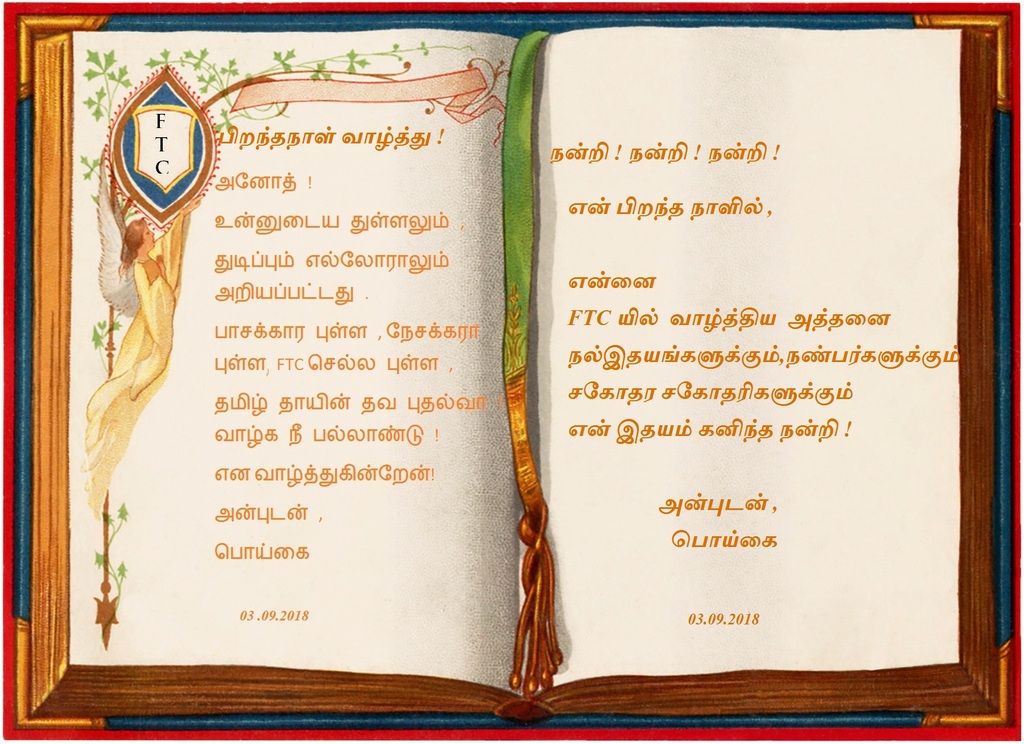 F
T
C
பிறந்தநாள் வாழ்த்து !
அனோத் !
உன்னுடைய துள்ளலும் ,
துடிப்பும் எல்லோராலும்
அறியப்பட்டது .
பாசக்கார புள்ள , நேசக்கரா
புள்ள, FTC செல்ல புள்ள ,
தமிழ் தாயின் தவ புதல்வா !
வாழ்க நீ பல்லாண்டு !
என வாழ்த்துகின்றேன்!
அன்புடன் ,
பொய்கை
03 .09.2018
நன்றி ! நன்றி ! நன்றி !
என் பிறந்த நாளில் ,
என்னை
FTC யில் வாழ்த்திய அத்தனை
நல்இதயங்களுக்கும்,நண்பர்களுக்கும்
சகோதர சகோதரிகளுக்கும்
என் இதயம் கனிந்த நன்றி !
அன்புடன் ,
பொய்கை
03.09.2018